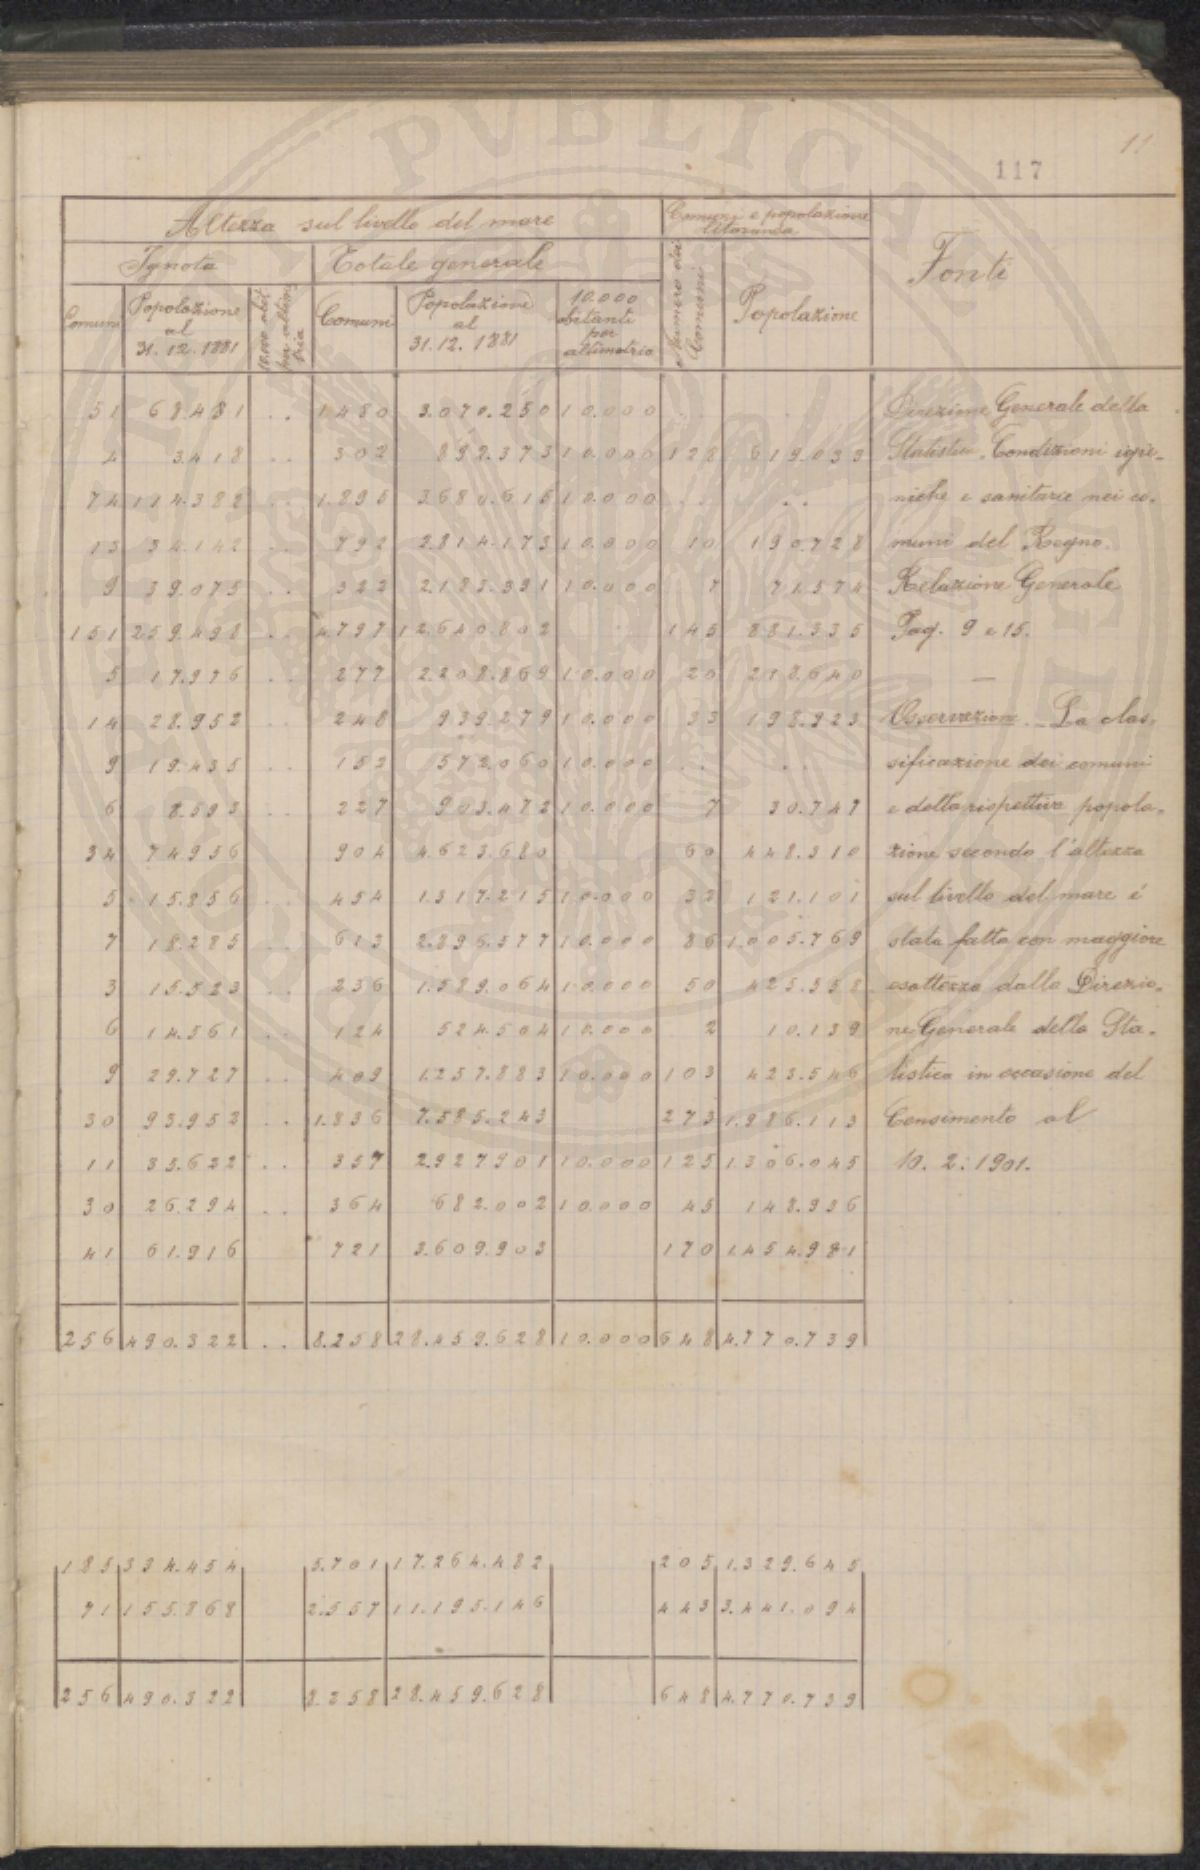 11
117
Altezza sul livello del mare
Comuni e popolazione
litoranea
Fonti
Ignota
Totale generale
Numero dei
Comuni
Popolazione
Comuni
Popolazione
al
31.12.1881
10.000 abit.
per altim
tria
Comuni
Popolazione
al
31.12.1881
10.000
abitanti
per
altimetria
51 68.481 .. 1480 3.070.250 10.000 .. .. Direzione Generale della
4 3.418 .. 302 892.373 10.000 128 619.033 Statistica. Condizioni igie-
74 114.382 .. 1.895 3.680.615 10.000 .. .. niche e sanitarie nei co-
13 34.142 .. 792 2.814.173 10.000 10 190.728 muni del Regno.
9 39.075 .. 322 2.183.391 10.000 7 71.574 Relazione Generale
151 259.498 .. 4.797 12.640.802 .. 145 881.335 Pag. 9 e 15.
5 17.976 .. 277 2.208.869 10.000 20 218.640 —
14 28.952 .. 248 939.279 10.000 33 198.923 Osservazione. — La clas-
9 19.435 .. 152 572.060 10.000 .. .. sificazione dei comuni
6 8.593 .. 227 903.472 10.000 7 30.747 e della rispettiva popola-
34 74956 .. 904 4.623.680 60 448.310 zione secondo l'altezza
5 15.856 .. 454 1.317.215 10.000 32 121.101 sul livello del mare é
7 18.285 .. 613 2.896.577 10.000 86 1.005.769 stata fatta con maggiore
3 15.523 .. 236 1.589.064 10.000 50 425.558 esattezza dalla Direzio-
6 14.561 .. 124 524.504 10.000 2 10.139 ne Generale della Sta-
9 29.727 .. 409 1.257.883 10.000 103 423.546 tistica in occasione del
30 93.952 .. 1.836 7.585.243 273 1.986.113 Censimento al
11 35.622 .. 357 2.927901 10.000 125 1.306.045 10.2.1901.
30 26.294 .. 364 682.002 10.000 45 148.936
41 61.916 721 3.609.903 170 1.454.981
256 490.322 .. 8.258 28.459.628 10.000 648 4.770.739
185 334.454 5.701 17.264.482 205 1.329.645
71 155.868 2.557 11.195.146 443 3.441.094
256 490.322 8.258 28.459.628 648 4.770.739